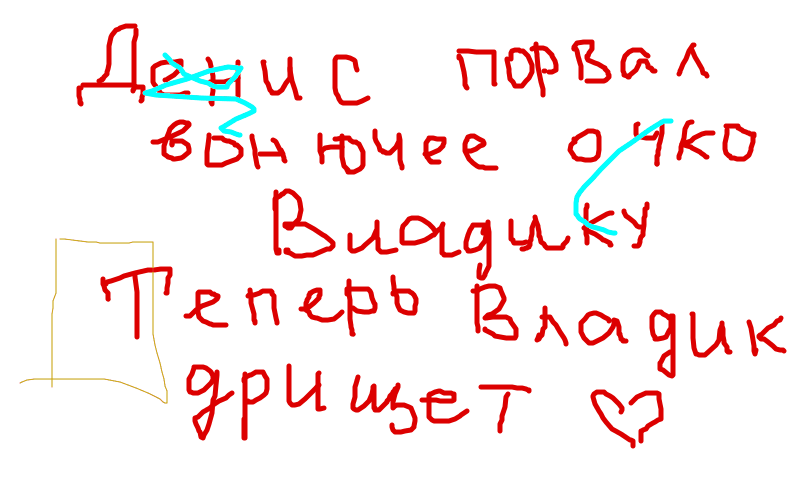 Денис порвал
вонючее очко
Владику
Теперь Владик
дрищет